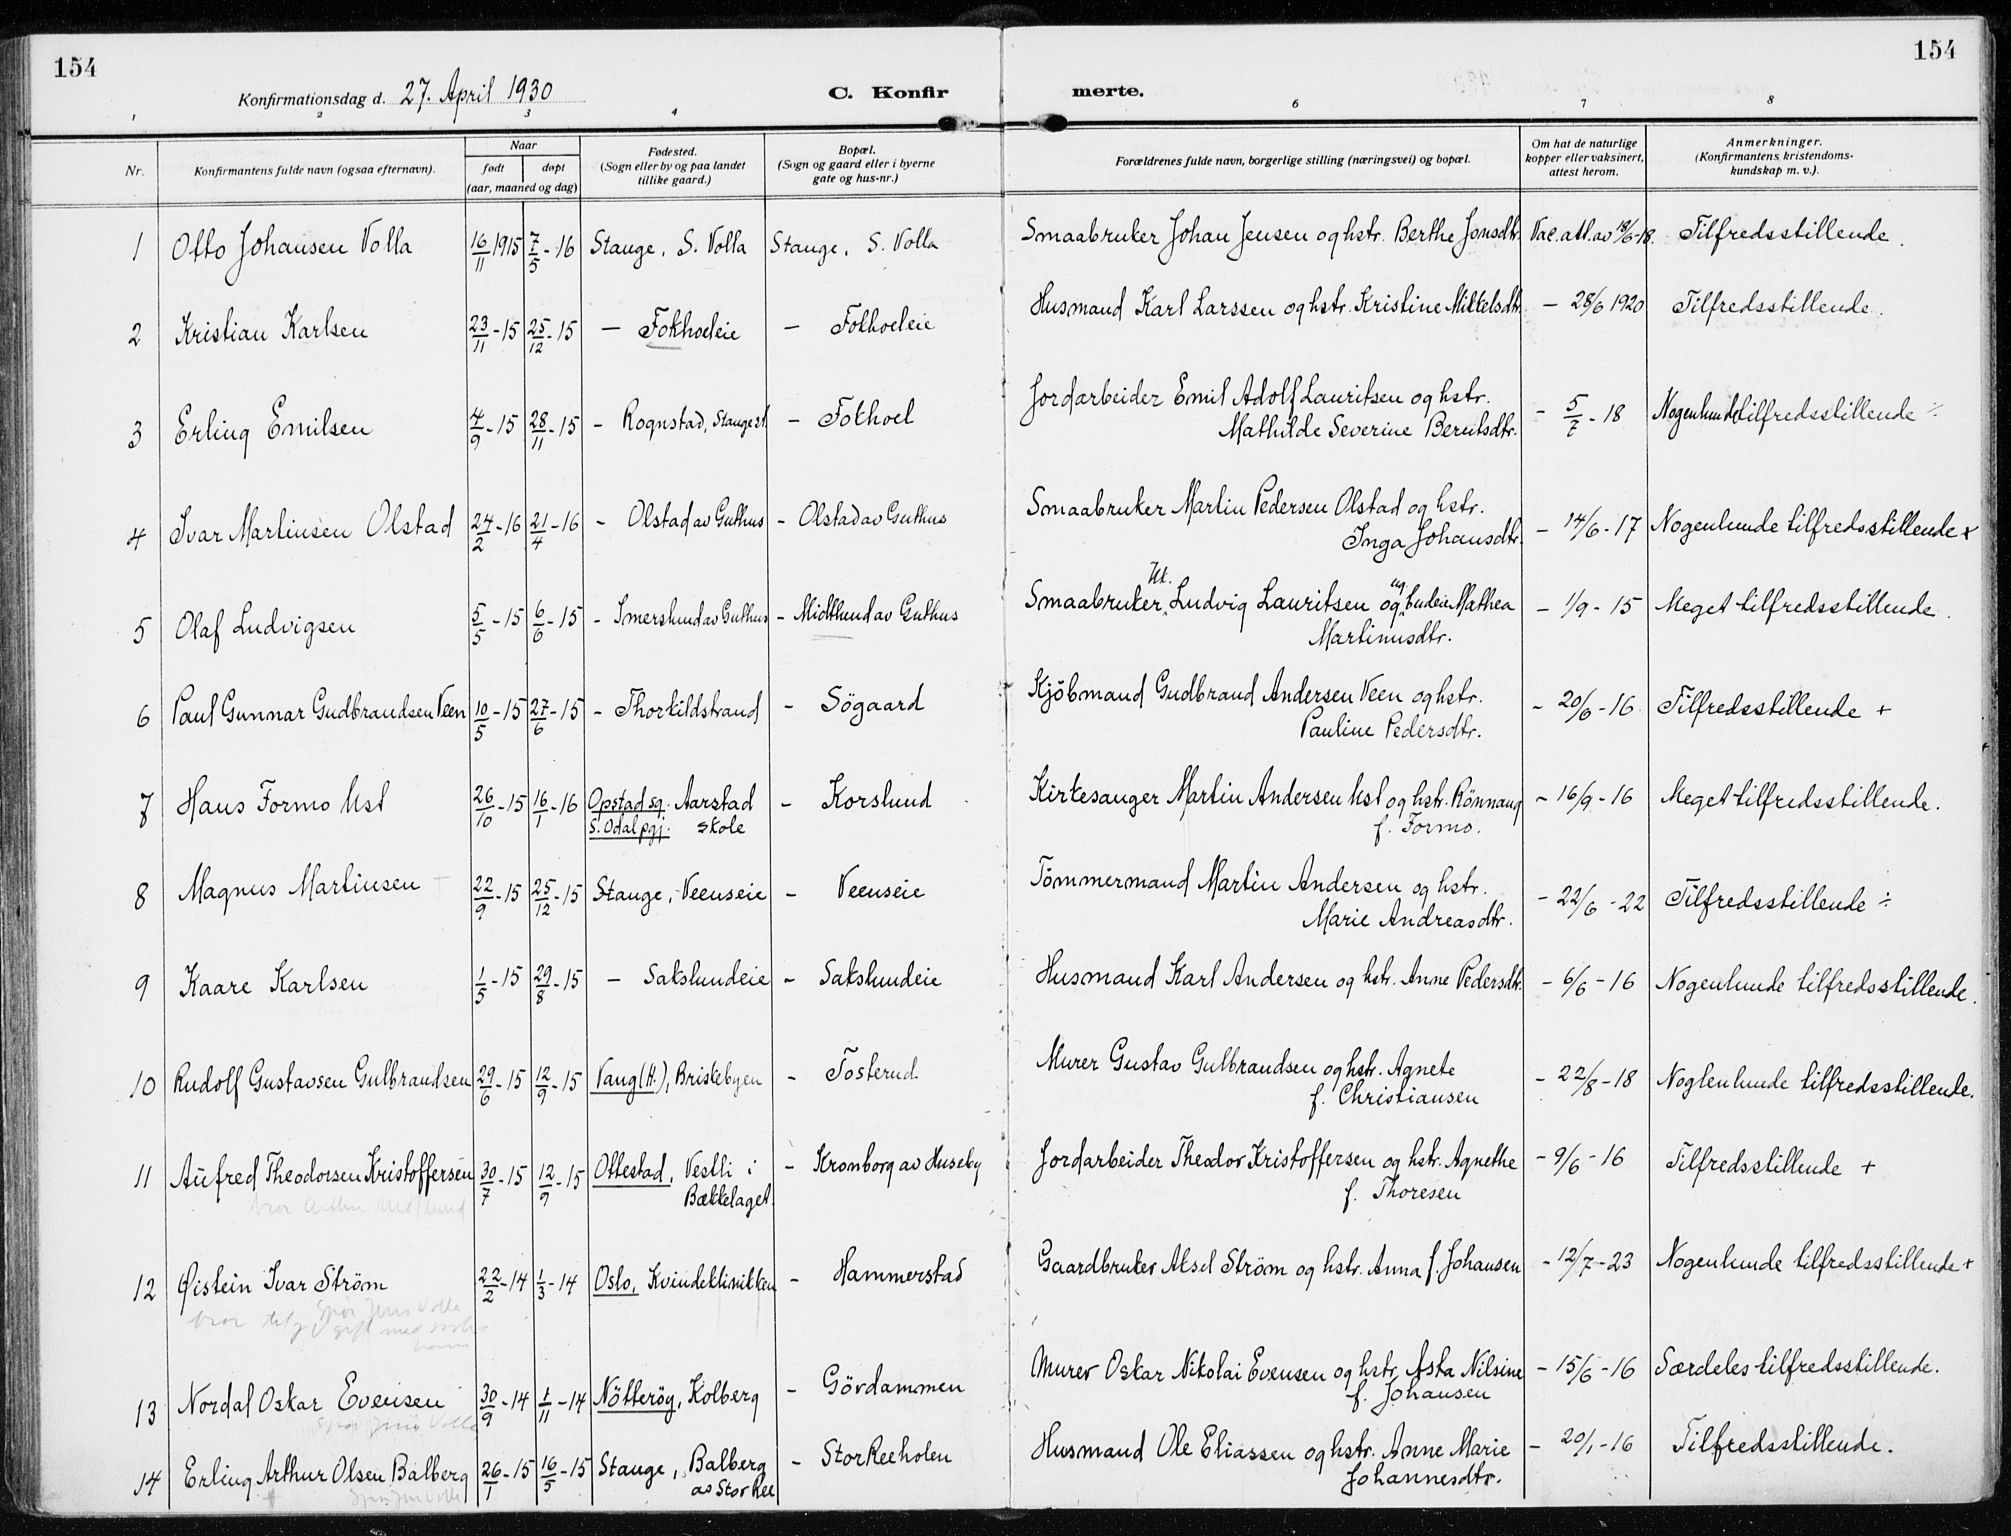 154
154
Konfirmationsdag d. 27. April 1930
C. Konfir merte.
1 2 3 4 6 7 8
Nr.
Konfirmantens fulde navn (ogsaa efternavn).
Naar
født døpt
(aar, maaned og dag)
Fødested.
(Sogn eller by og paa landet
tillike gaard.)
Bopæl.
(Sogn og gaard eller i byerne
gate og hus-nr.)
Forældrenes fulde navn, borgerlige stilling (næringsvei) og bopæl.
Om hat de naturlige
kopper eller vaksinert,
attest herom.
Anmerkninger.
(Konfirmantens kristendoms-
kundskap m. v.).
1 Otto Johansen Volla 16/11 1915 7/5-16 Stange, S. Volla Stange, S. Volla Smaabruker Johan Jensen og hstr. Berthe Jonsdtr. Vac. att. av 18/6-18. Tilfredsstillende.
2 Kristian Karlsen 23/11-15 25/12-15 — Fokhoeleie — Fokhoeleie Husmand Karl Larssen og hstr. Kristine Mikkelsdtr. — 28/6 1920 Tilfredsstillende.
3 Erling Emilsen 4/9-15 28/11-15 - Rognstad, Stange st. - Fokhoel Jordarbeider Emil Adolf Lauritsen og hstr. - 5/7-18 Nogenlunde tilfredsstillende ÷
Mathilde Severine Berntsdtr.
4 Ivar Martinsen Olstad 24/2-16 21/4-16 - Olstad av Guthus - Olstad av Guthus Smaabruker Martin Pedersen Olstad og hstr. - 14/6-17 Nogenlunde tilfredsstillende +
Inga Johansdtr.
5 Olaf Ludvigsen 5/5-15 6/6-15 - Smerslund av Guthus - Midtlund av Guthus Smaabruker, Uk. Ludvig Lauritsen og ug. budeie Mathea - 1/9-15 Meget tilfredsstillende.
Martinusdtr.
6 Paul Gunnar Gudbrandsen Veen 10/5-15 27/6-15 - Thorkildstrand - Sögaard Kjöbmand Gudbrand Andersen Veen og hstr. - 20/6-16 Tilfredsstillende +
Pauline Pedersdtr.
7 Hans Formo Ust 26/10-15 16/1-16 Opstad sg. Aarstad - Korslund Kirkesanger Martin Andersen Ust og hstr. Rönnaug - 16/9-16 Meget tilfredsstillende.
S. Odal pgj. skole f. Formo.
8 Magnus Martinsen + 22/9-15 25/12-15 Stange, Veenseie - Veenseie Tömmermand Martin Andersen og hstr. - 22/6-22 Tilfredsstillende ÷
Marie Andreasdtr.
9 Kaare Karlsen 1/5-15 29/8-15 — Sakslundeie - Sakslundeie Husmand Karl Andersen og hstr. Anne Pedersdtr. - 6/6-16 Nogenlunde tilfredsstillende.
10 Rudolf Gustavsen Gulbrandsen 29/6-15 12/9-15 Vang (H.), Briskebyen - Tosterud Murer Gustav Gulbrandsen og hstr. Agnete - 22/8-18 Noglenlunde tilfredsstillende.
f. Christiansen
11 Alfred Theodorsen Kristoffersen 30/7-15 12/9-15 Ottestad, Vestli i - Kronborg av Huseby Jordarbeider Theodor Kristoffersen og hstr. Agnethe - 9/6-16 Tilfredsstillende +
Bækkelaget. f. Thoresen
12 Øistein Ivar Ström 22/2-14 1/3-14 Oslo, Kvindeklinikken - Hammerstad Gaardbruker Aksel Ström og hstr. Anna f. Johansen - 12/7-23 Nogenlunde tilfredsstillende +
13 Nordal Oskar Evensen 30/9-14 1/11-14 Nötteröy, Kolberg - Gördammen Murer Oskar Nikolai Evensen og hstr. Asta Nilsine - 15/6-16 Særdeles tilfredsstillende.
f. Johansen
14 Erling Arthur Olsen Balberg 26/1-15 16/5-15 Stange, Balberg - Storkeeholen Husmand Ole Eliassen og hstr. Anne Marie - 20/1-16 Tilfredsstillende.
av Storkee Johannesdtr.